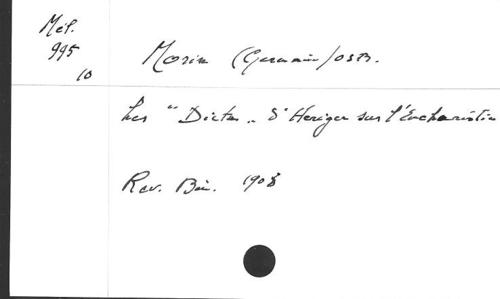 Mél.
995
10
Morin (Germain) OSB.
Les "Dicta" d'Heriger sur l'Eucharistie
Rev. Bén. 1908